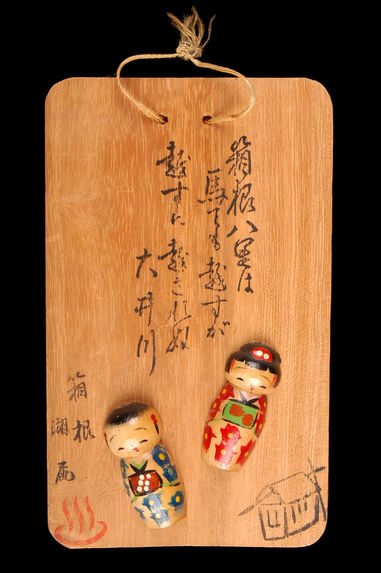 箱根八里は
馬でも越すが
越すに越されぬ
大井川
箱根
湖尻